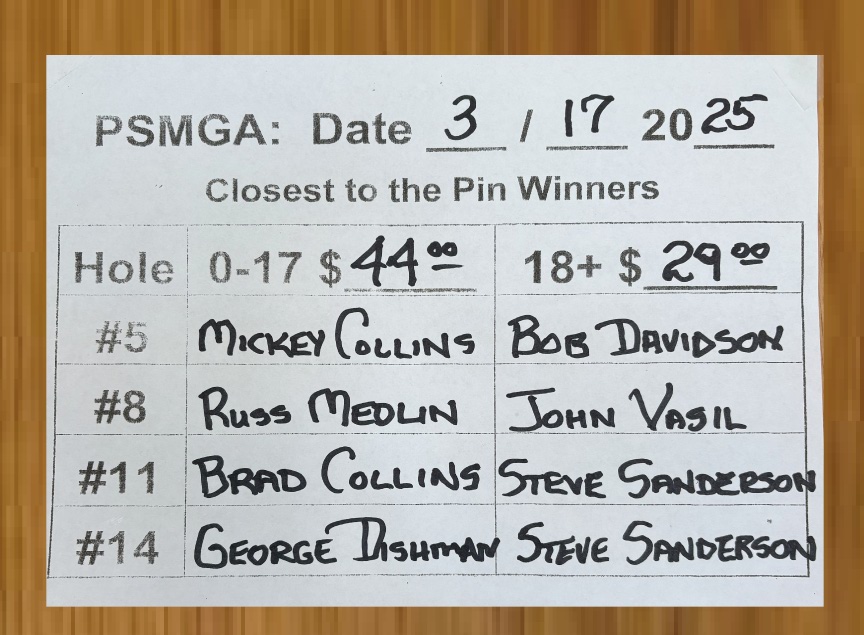 PSMGA: Date 3 / 17 2025
Closest to the Pin Winners
Hole 0-17 $ 44.00 18+ $ 29.00
#5 MICKEY COLLINS BOB DAVIDSON
#8 RUSS MEDLIN JOHN VASIL
#11 BRAD COLLINS STEVE SANDERSON
#14 GEORGE DISHMAN STEVE SANDERSON